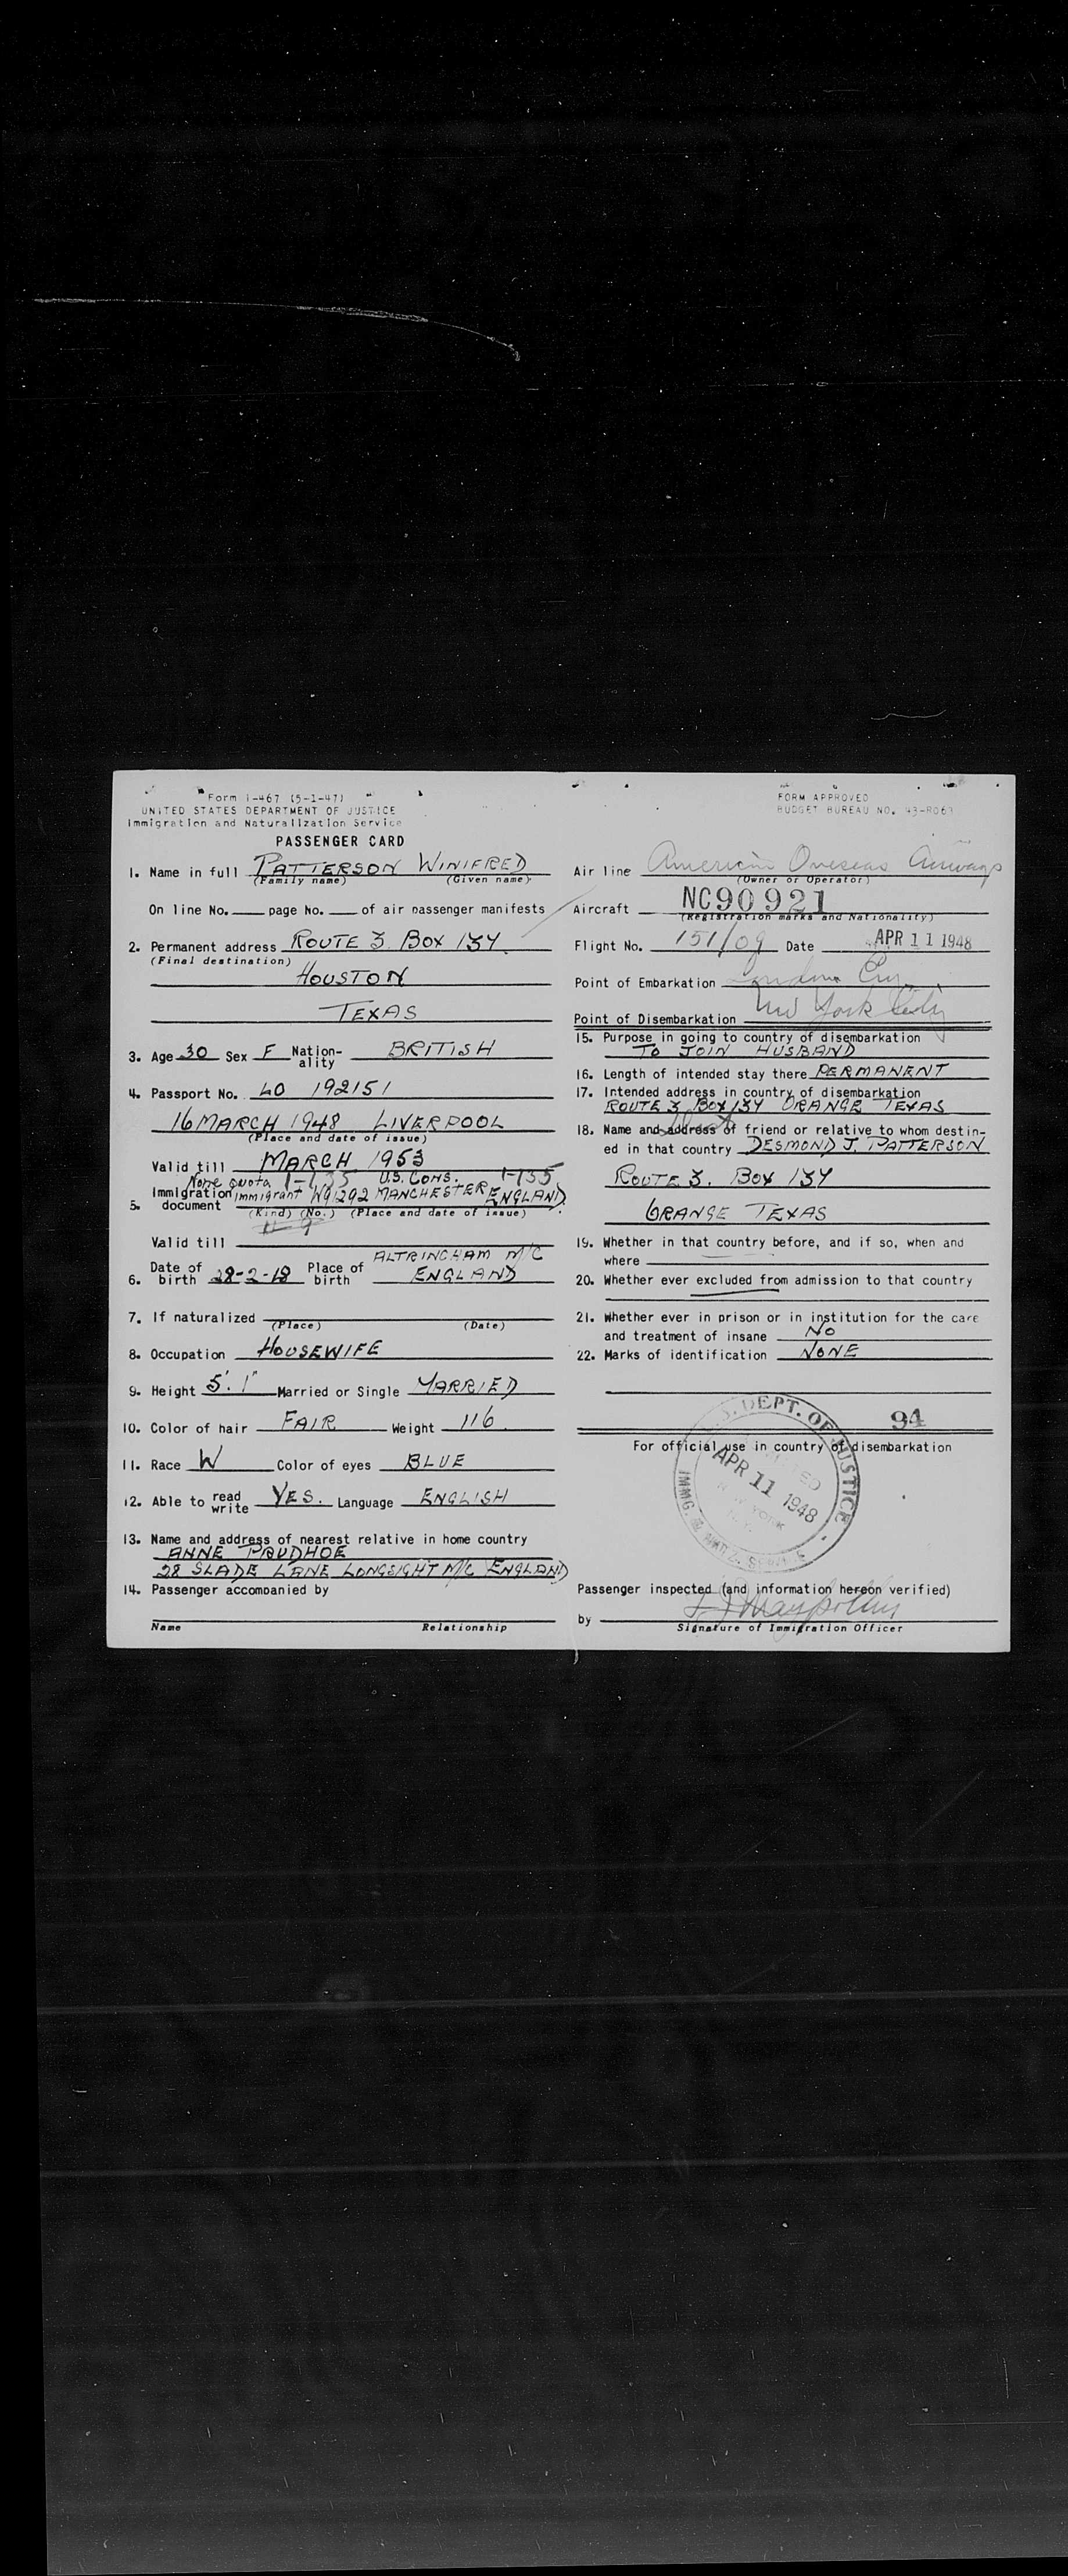 Form I-467 (5-1-47)
UNITED STATES DEPARTMENT OF JUSTICE
Immigration and Naturalization Service
PASSENGER CARD
1. Name in full PATTERSON WINIFRED
(Family name) (Given name)
On line No. page No. of air passenger manifests
2. Permanent address ROUTE 3. BOX 134
(Final destination)
HOUSTON
TEXAS
3. Age 30 Sex F Nation-ality BRITISH
4. Passport No. LO 192151
16 MARCH 1948 LIVERPOOL
(Place and date of issue)
Valid till MARCH 1953
None quota U.S. CONS. 1-135
5. Immigration document immigrant MANCHESTER ENGLAND.
(Kind) (No.) (Place and date of issue)
Valid till
ALTRINCHAM M/C
6. Date of birth 28-2-18 Place of birth ENGLAND
7. If naturalized
(Place) (Date)
8. Occupation HOUSEWIFE
9. Height 5'. 1" Married or Single MARRIED
10. Color of hair FAIR Weight 116
11. Race W Color of eyes BLUE
12. Able to read write YES. Language ENGLISH
13. Name and address of nearest relative in home country
ANNE PRUDHOE
28 SLADE LANE LONGSIGHT M/C ENGLAND
14. Passenger accompanied by
Name Relationship
FORM APPROVED
BUDGET BUREAU NO. 43-R063
Air line American Overseas Airways
(Owner or Operator)
Aircraft NC90921
(Registration marks and Nationality)
Flight No. 151/09 Date APR 11 1948
Point of Embarkation London
Point of Disembarkation New York City
15. Purpose in going to country of disembarkation
TO JOIN HUSBAND
16. Length of intended stay there PERMANENT
17. Intended address in country of disembarkation
ROUTE 3 BOX 134 ORANGE TEXAS
18. Name and address of friend or relative to whom destin-
ed in that country DESMOND J. PATTERSON
ROUTE 3. BOX 134
ORANGE TEXAS
19. Whether in that country before, and if so, when and
where
20. Whether ever excluded from admission to that country
21. Whether ever in prison or in institution for the care
and treatment of insane NO
22. Marks of identification NONE
94
For official use in country of disembarkation
U.S. DEPT. OF JUSTICE
APR 11 1948
IMMG. &
Passenger inspected (and information hereon verified)
by
Signature of Immigration Officer